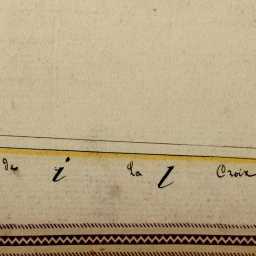 de i la l Croix